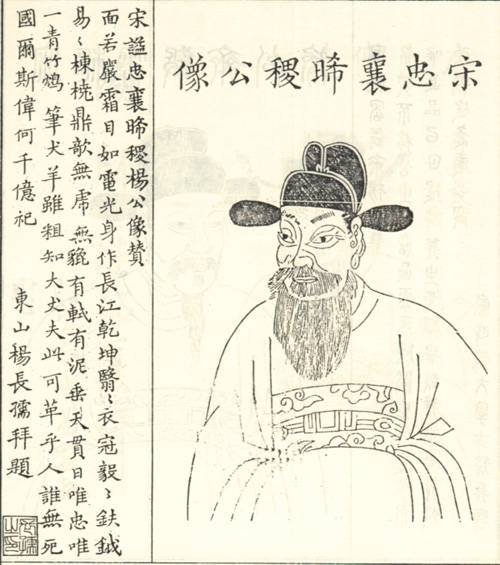 宋忠襄晞稷公像
宋謚忠襄晞稷楊公像贊
面若嚴霜目如電光身作長江乾坤翳〻衣冠毅〻鈇鉞
易〻棟橈鼎欹無虎無貔有軾有泥垂天貫日唯忠唯
一青竹鴆筆犬羊雖粗知大丈夫此可革乎人誰無死
國爾斯偉何千億祀
東山楊長孺拜題